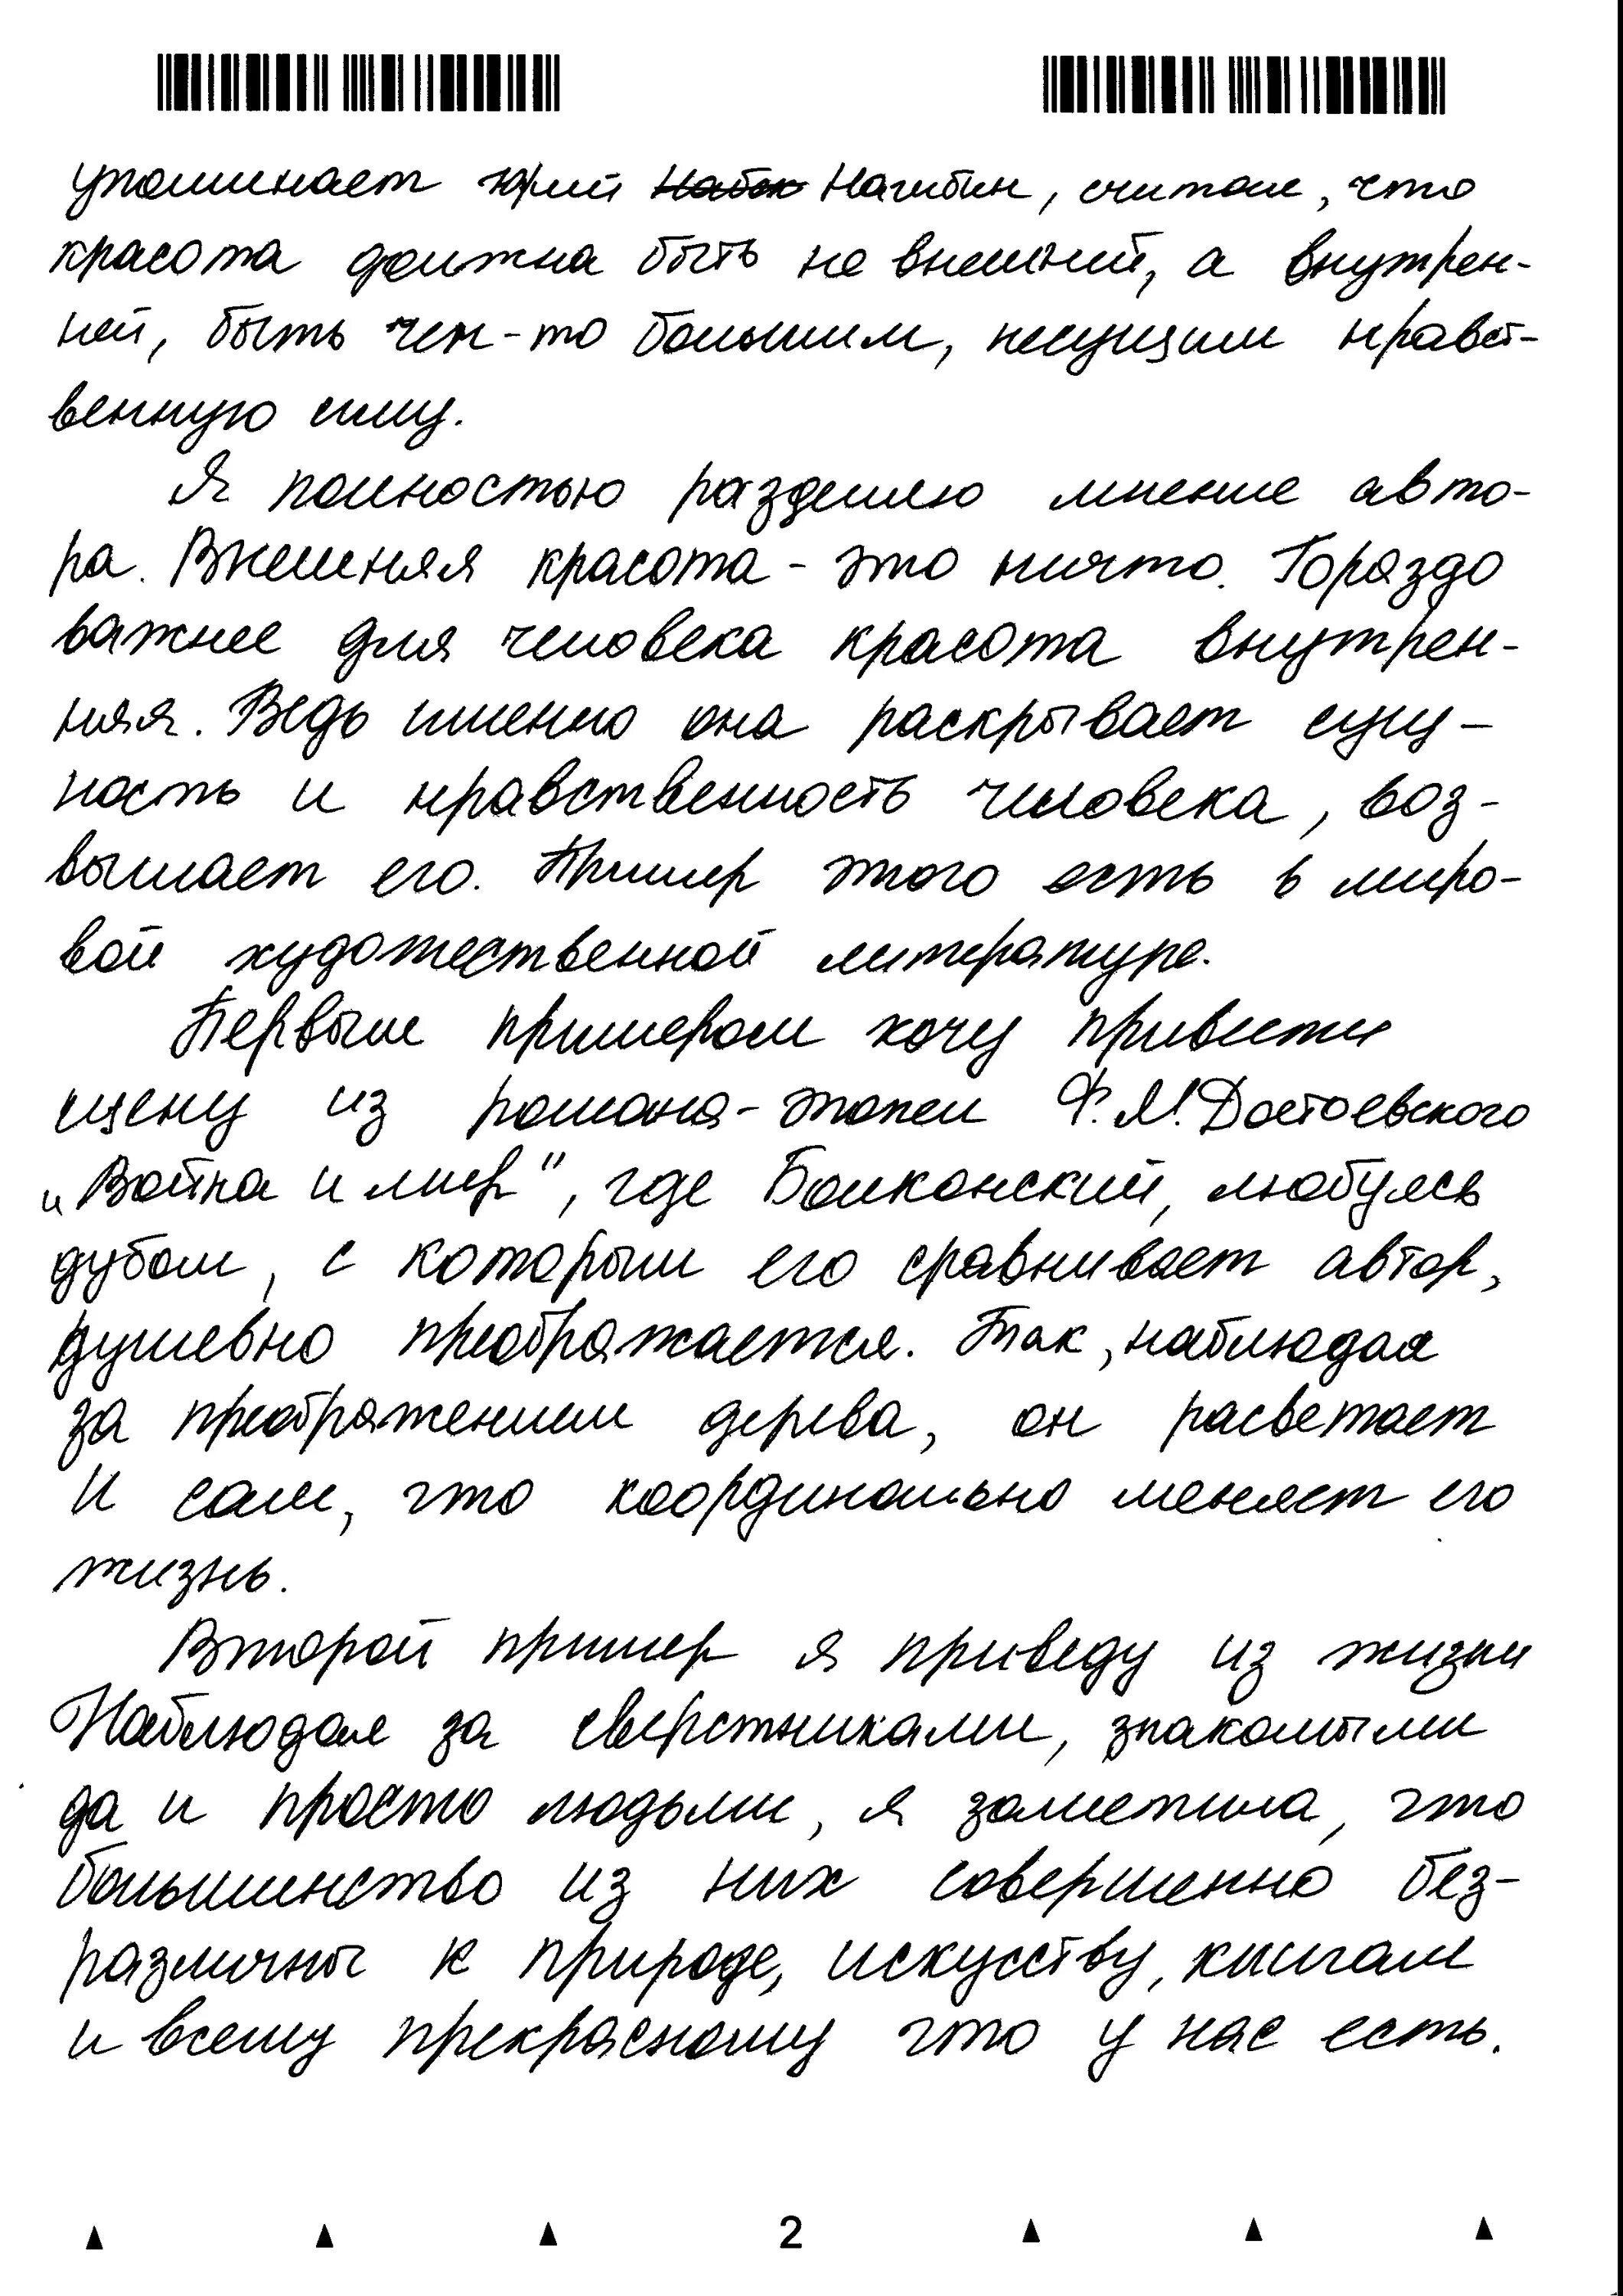 упоминает Юрий Набок Нагибин, считая, что
красота должна быть не внешний, а внутрен-
ней, быть чем-то большим, несущим нравст-
венную силу.
Я полностью разделяю мнение авто-
ра. Внешняя красота - это ничто. Гораздо
важнее для человека красота внутрен-
няя. Ведь именно она раскрывает сущ-
ность и нравственность человека, воз-
вышает его. Пример этого есть в миро-
вой художественной литературе.
Первым примером хочу привести
сцену из романа-эпопеи Ф.М.Достоевского
„Война и мир", где Болконский, любуясь
дубом, с которым его сравнивает автор,
душевно преображается. Так, наблюдая
за преображением дерева, он расветает
и сам, что координально меняет его
жизнь.
Второй пример я приведу из жизни
Наблюдая за сверстниками, знакомыми
да и просто людьми, я заметила, что
большинство из них совершенно без-
различны к природе, искусству, книгам
и всему прекрасному что у нас есть.
2